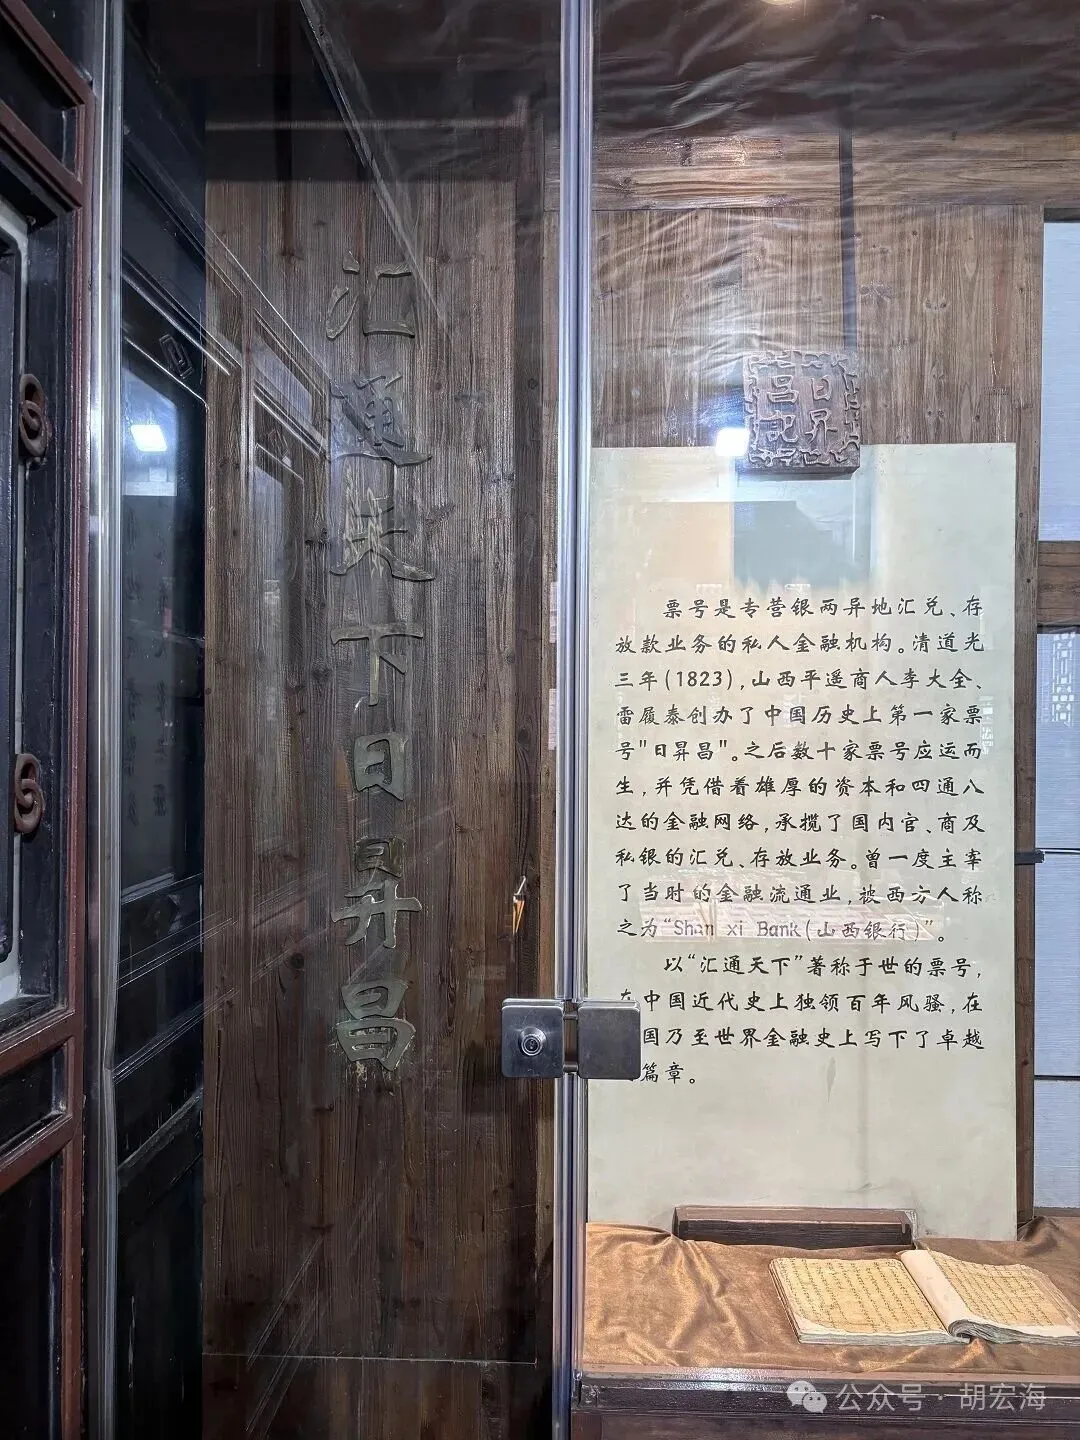 汇通天下日昇昌
日昇
昌記
票号是专营银两异地汇兑、存
放款业务的私人金融机构。清道光
三年(1823),山西平遥商人李大全、
雷履泰创办了中国历史上第一家票
号"日昇昌"。之后数十家票号应运而
生,并凭借着雄厚的资本和四通八
达的金融网络,承揽了国内官、商及
私银的汇兑、存放业务。曾一度主宰
了当时的金融流通业,被西方人称
之为“Shan xi Bank(山西银行)”。
以“汇通天下”著称于世的票号,
中国近代史上独领百年风骚,在
国乃至世界金融史上写下了卓越
篇章。
公众号·胡宏海